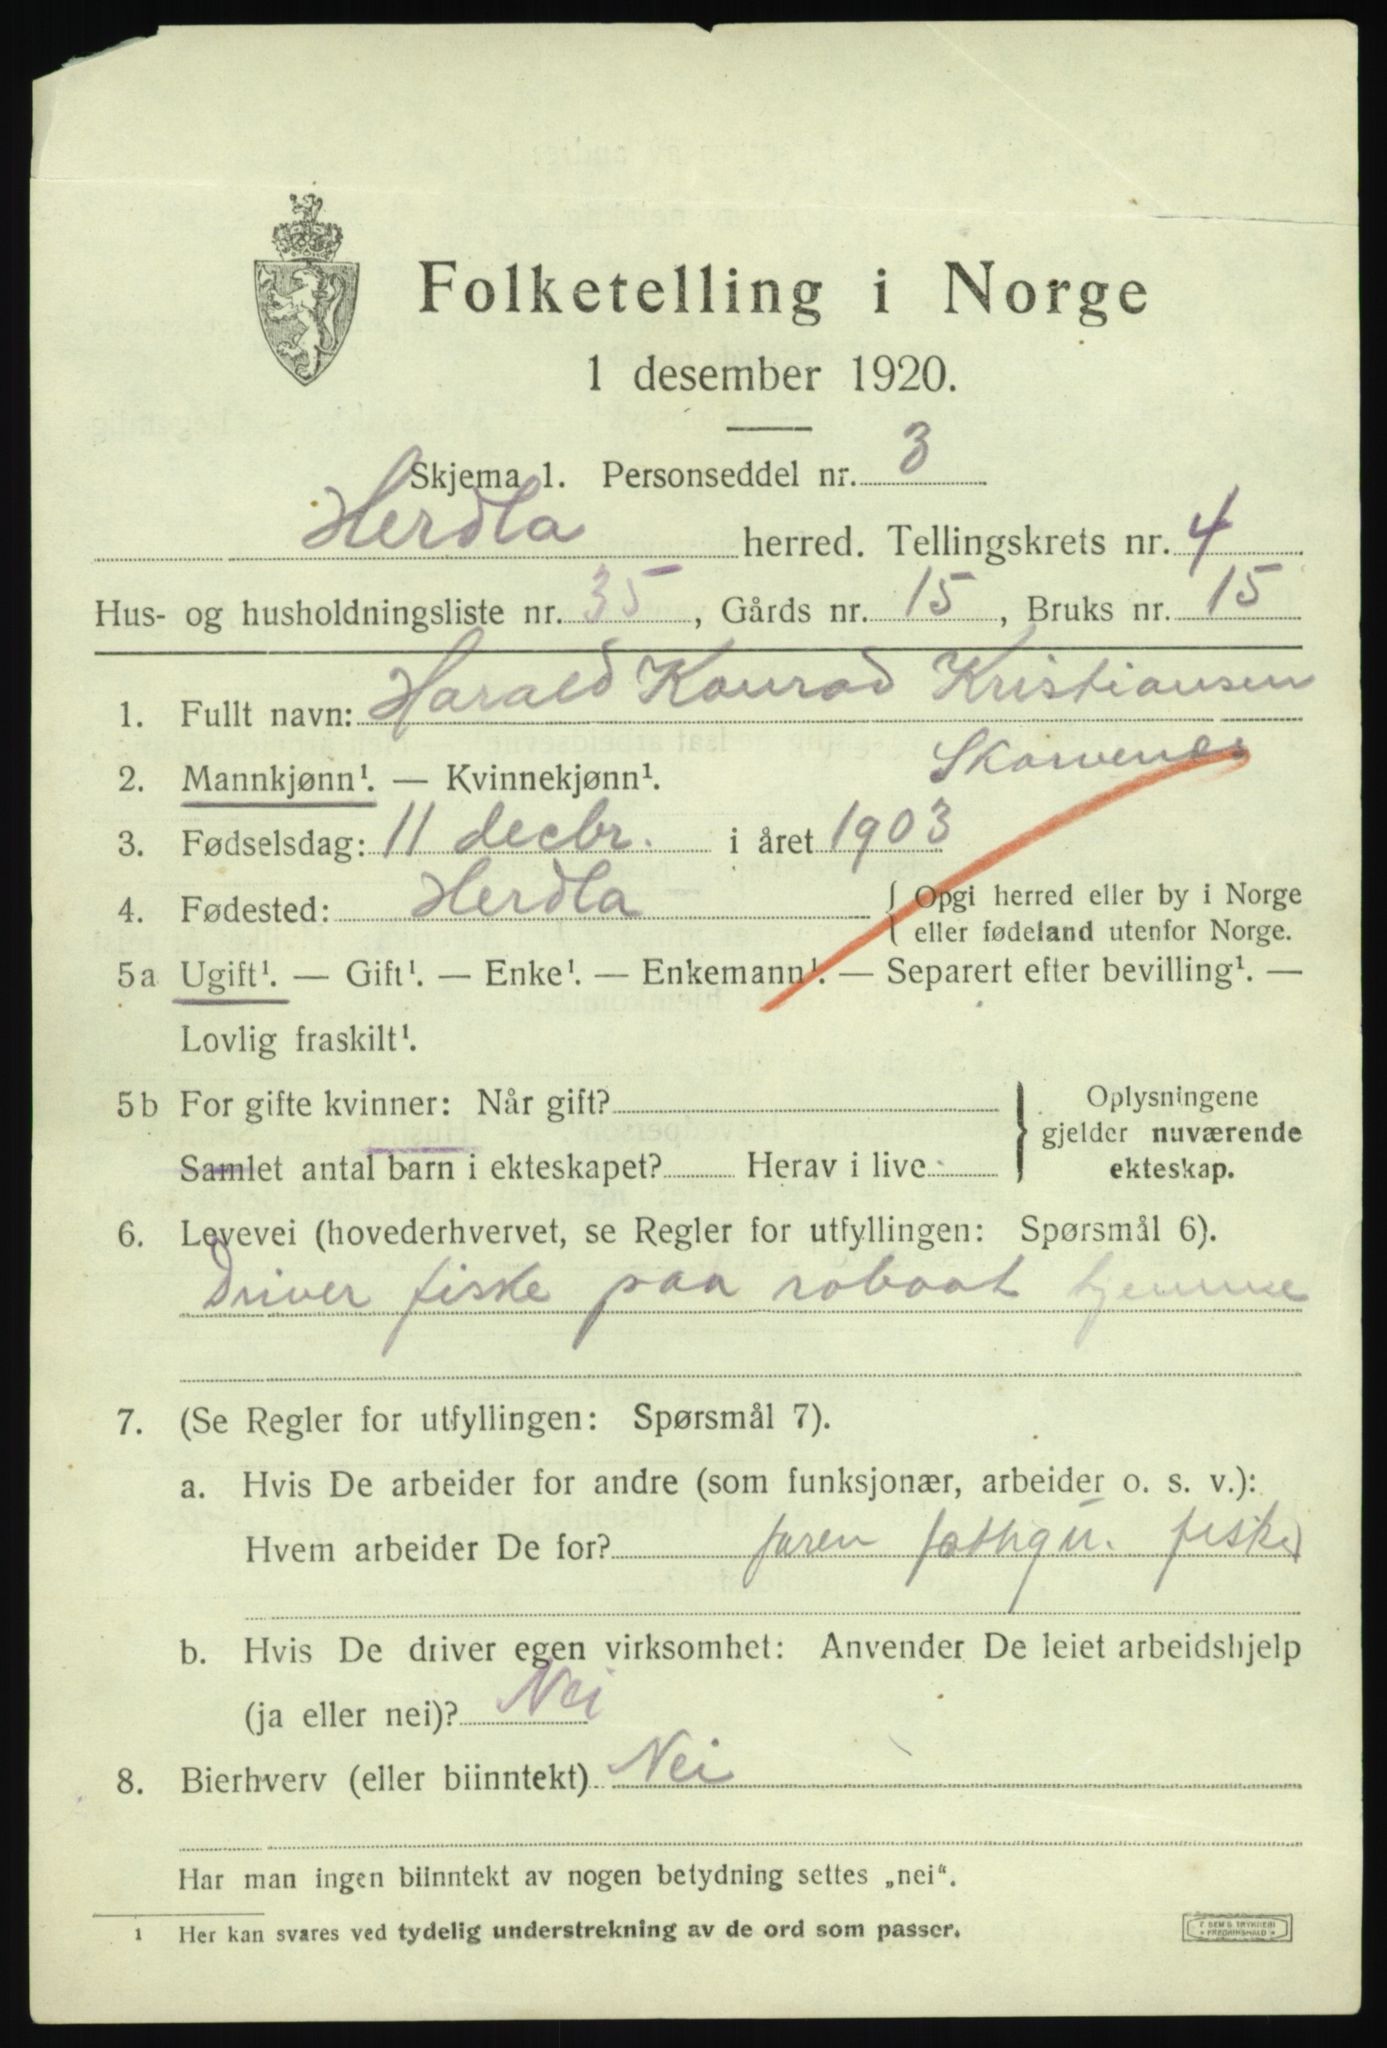 Folketelling i Norge
1 desember 1920.
Skjema 1. Personseddel nr. 3
Herdla herred. Tellingskrets nr. 4
Hus- og husholdningsliste nr. 35, Gårds nr. 15, Bruks nr. 15
1. Fullt navn: Harald Konrad Kristiansen
Skarvenes
2. Mannkjønn¹. — Kvinnekjønn¹.
3. Fødselsdag: 11 decbr. i året 1903
4. Fødested: Herdla { Opgi herred eller by i Norge
eller fødeland utenfor Norge.
5a Ugift¹. — Gift¹. — Enke¹. — Enkemann¹. — Separert efter bevilling¹. —
Lovlig fraskilt¹.
5b For gifte kvinner: Når gift?
Samlet antal barn i ekteskapet? Herav i live
} Oplysningene
gjelder nuværende
ekteskap.
6. Levevei (hovederhvervet, se Regler for utfyllingen: Spørsmål 6).
Driver fiske paa robaat hjemme
7. (Se Regler for utfyllingen: Spørsmål 7).
a. Hvis De arbeider for andre (som funksjonær, arbeider o. s. v.):
Hvem arbeider De for? faren fisker
b. Hvis De driver egen virksomhet: Anvender De leiet arbeidshjelp
(ja eller nei)? Nei
8. Bierhverv (eller biinntekt) Nei
Har man ingen biinntekt av nogen betydning settes „nei“.
¹ Her kan svares ved tydelig understrekning av de ord som passer.